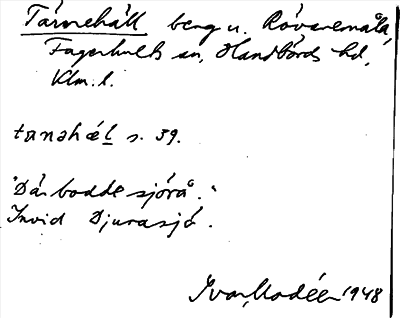 Tärnehäll berg u. Rövaremåla,
Fagerhults sn, Handbörds hd,
Klm. l.
tanəhæl s. 39.
"Där bodde sjörå."
Invid Djurasjö.
Ivar Modéer 1948